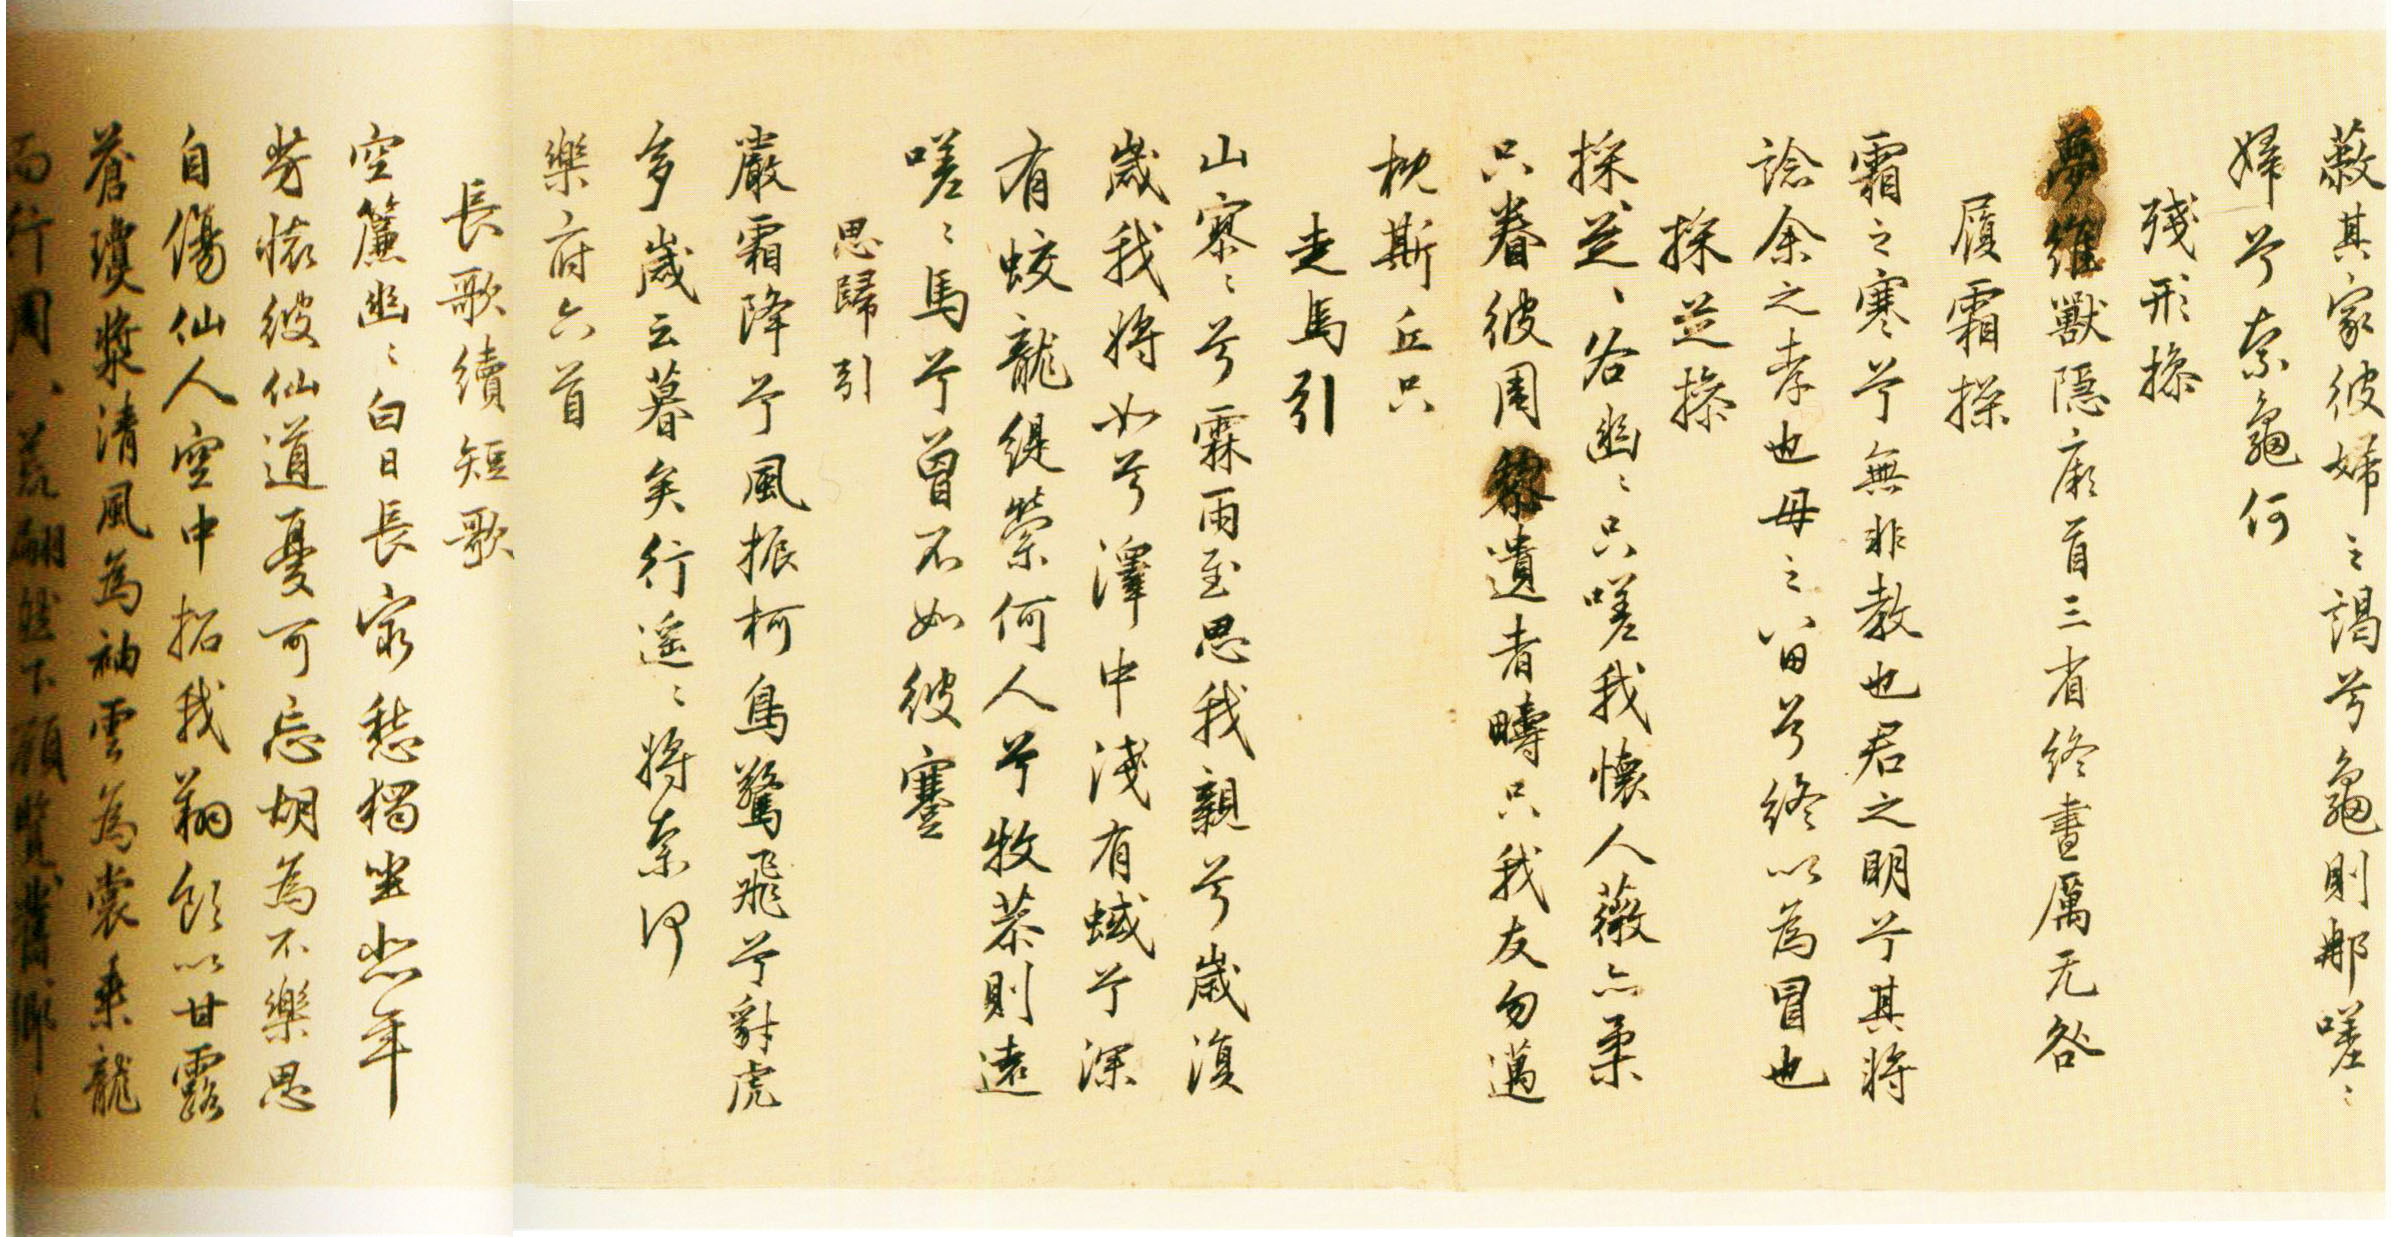 蔽其家彼婦之謁兮龜則那嗟〻
婦兮奈龜何
殘形操
夢維獸隱厥首三省終晝厲无咎
履霜操
霜之寒兮無非教也君之明兮其將
諗余之孝也母之留兮終以為冒也
採芝操
採芝〻谷幽〻只嗟我懷人薇亦柔
只眷彼周黎遺者疇只我友勿邁
枕斯丘只
走馬引
山寥〻兮霖雨至思我親兮歲復
歲我將如兮澤中淺有蜮兮深
有蛟龍緹縈何人兮牧恭則遠
嗟〻馬兮曾不如彼蹇
思歸引
嚴霜降兮風振柯鳥驚飛兮豺虎
多歲云暮矣行遥〻將奈何
樂府六首
長歌續短歌
空簾幽〻白日長家愁獨坐悲年
芳懷彼仙道憂可忘胡為不樂思
自傷仙人空中招我翱飲以甘露
蒼瓊漿清風為袖雲為裳乘龍
而行周八荒翩然下顧覽舊鄉〻